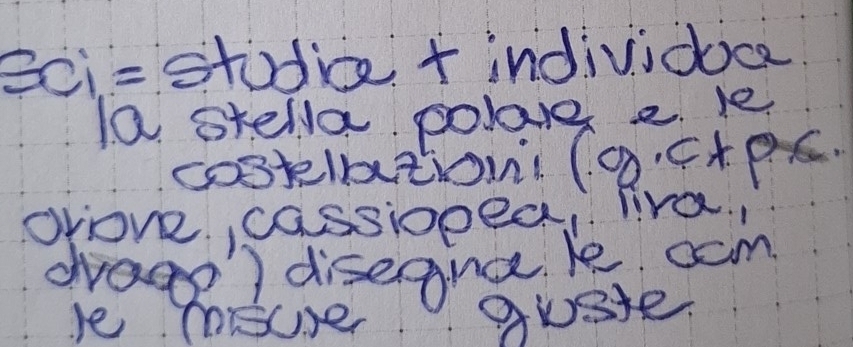 sci = studia + individua
la stella polare e le
costellazioni (g.c + p.c.
orione, cassiopea, lira,
drago) disegna le con
le misure giuste